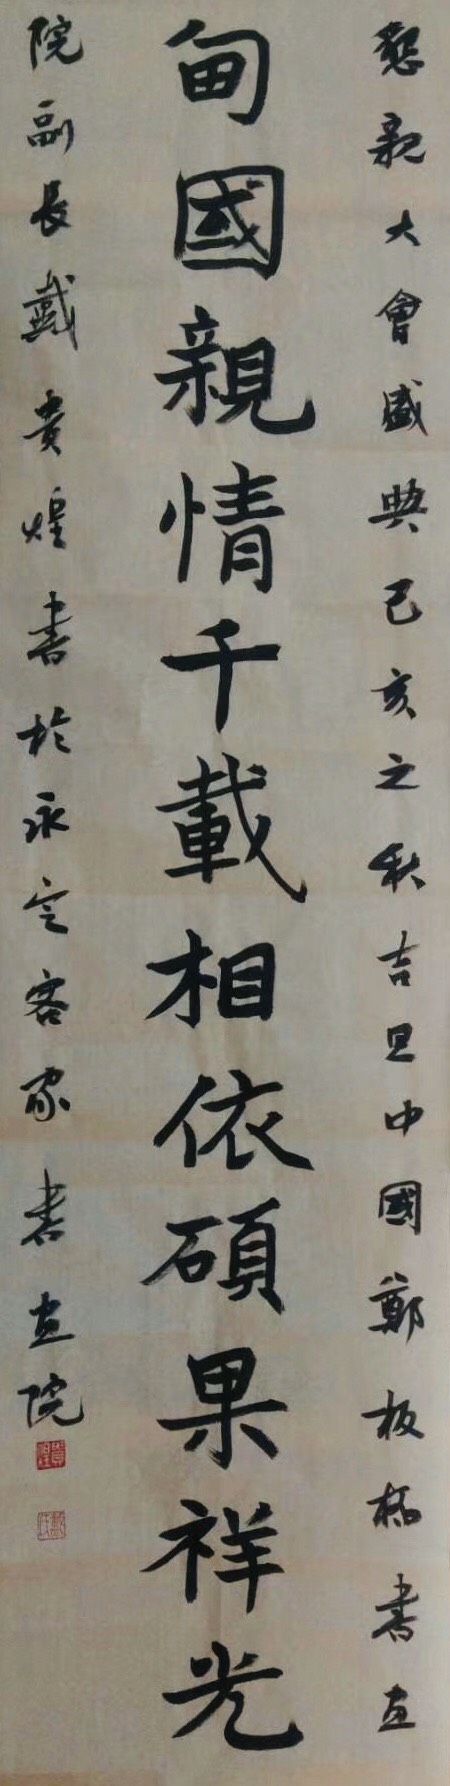 懇親大會盛典己亥之秋吉旦中國鄭板橋書画
甸國親情千載相依碩果祥光
院副長戴貴煌書於永定客家書画院